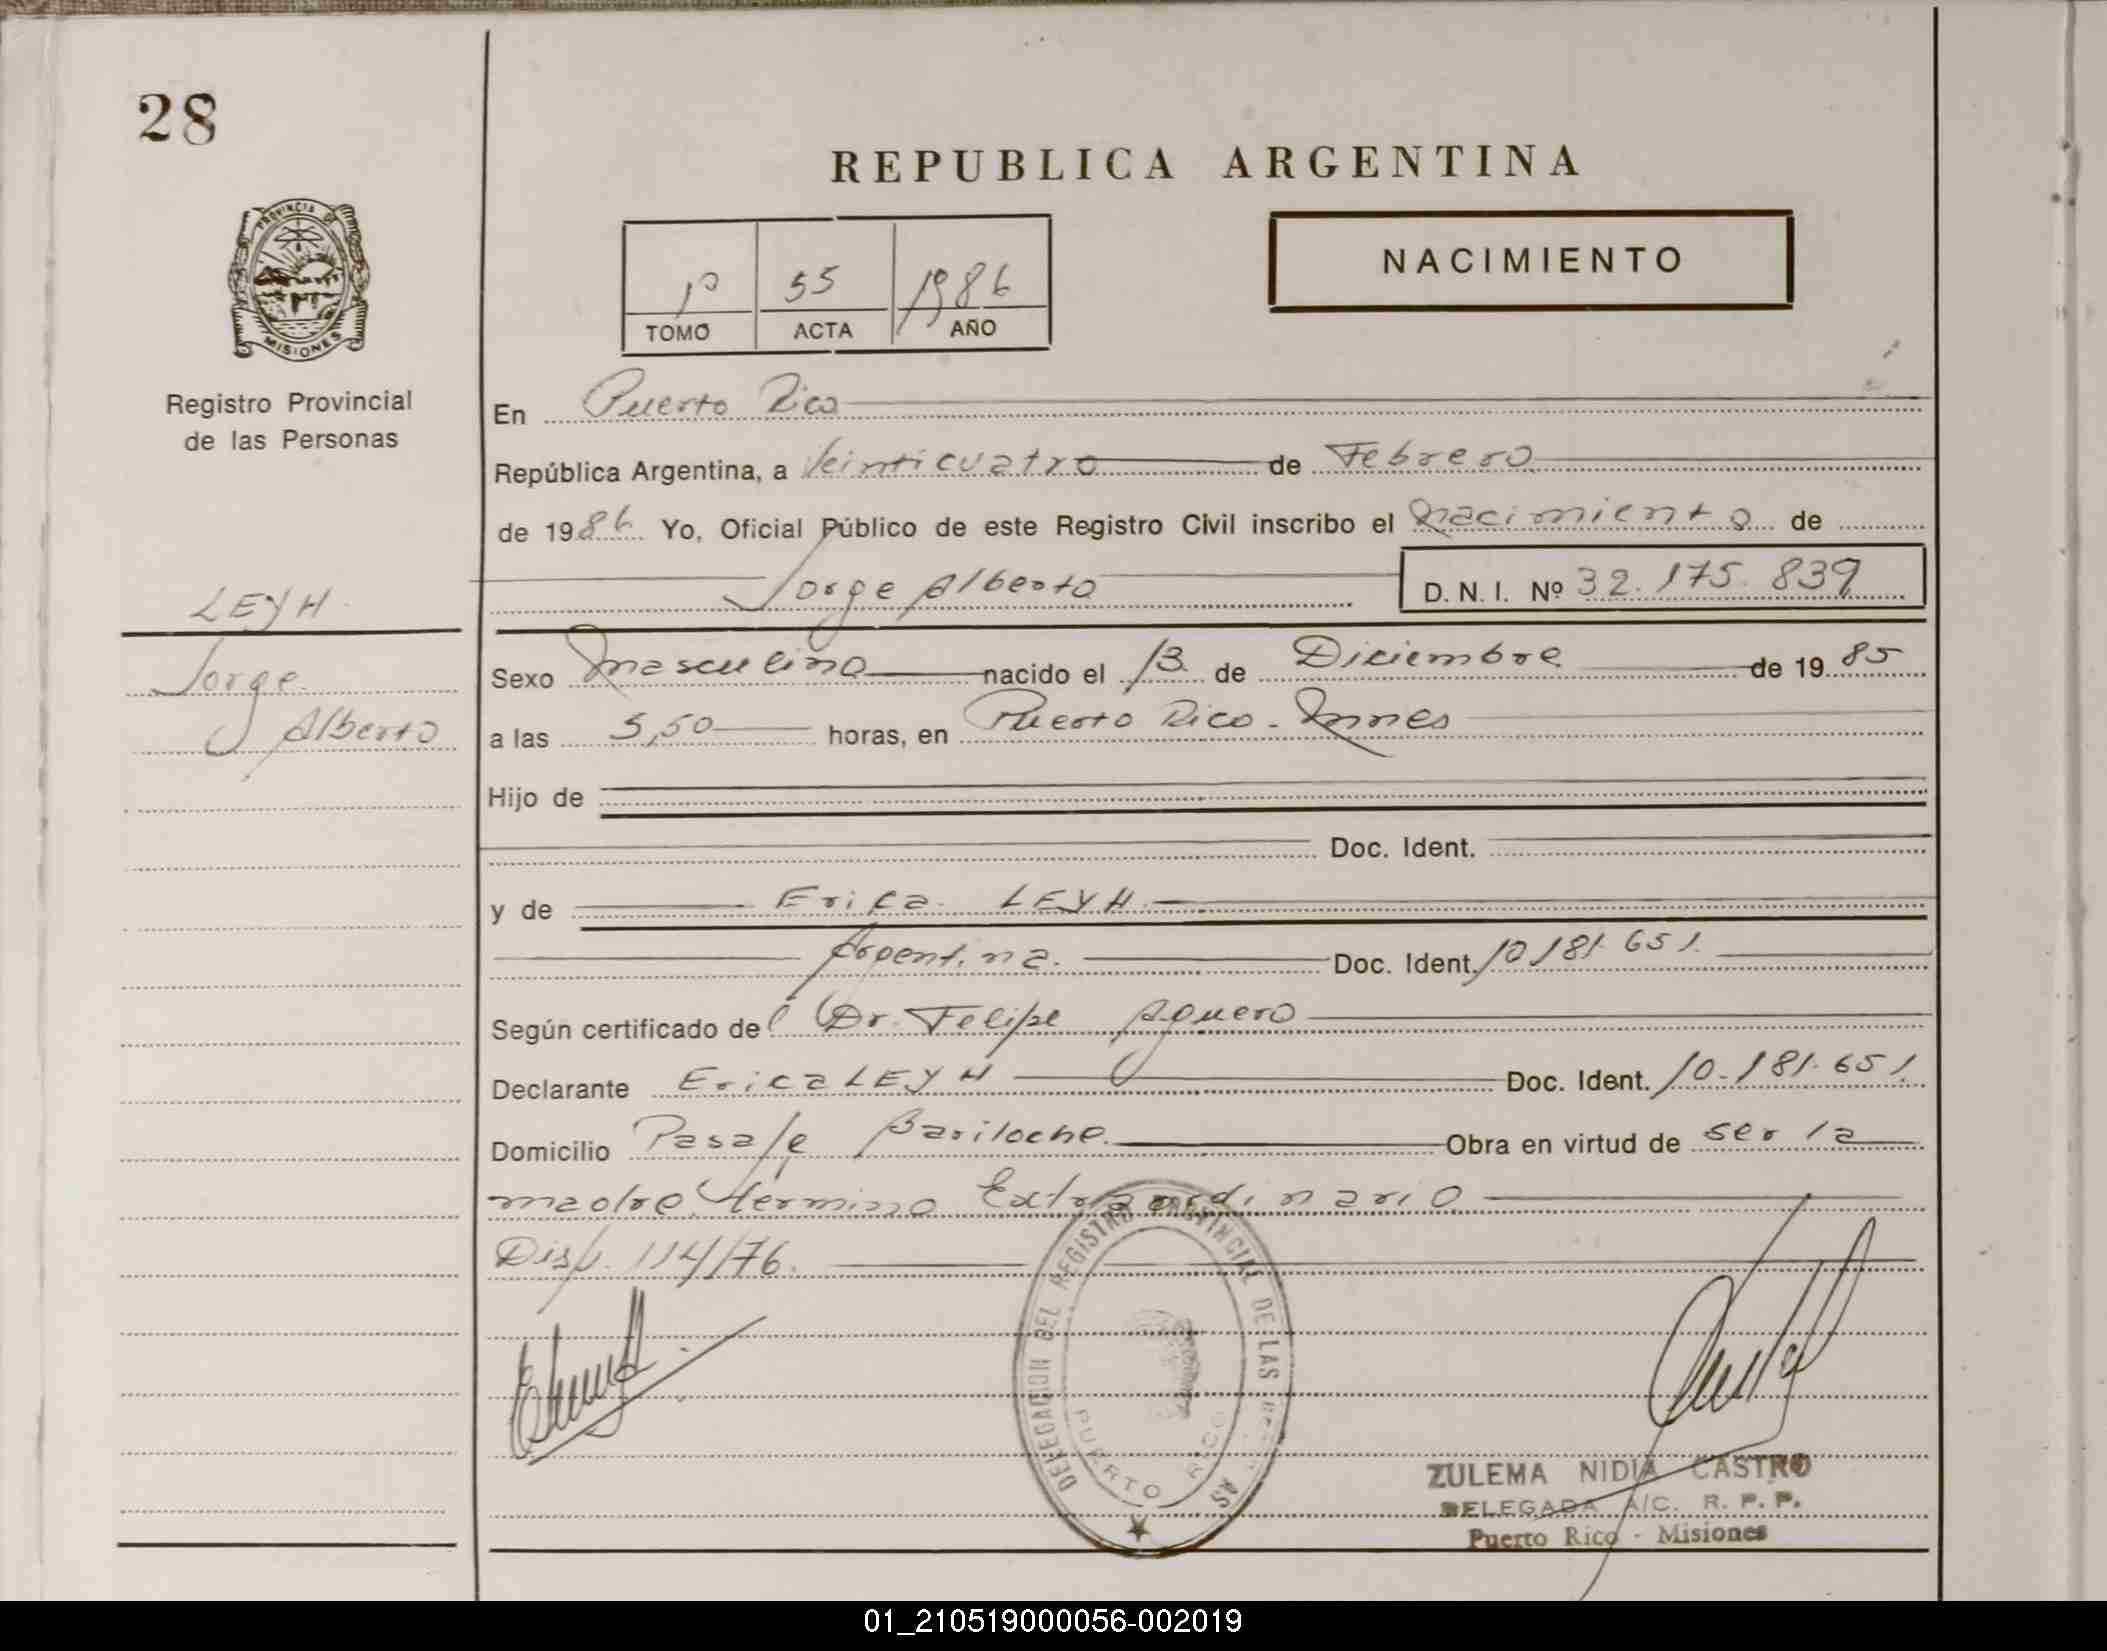 28
REPUBLICA ARGENTINA
PROVINCIA DE
MISIONES
Registro Provincial
de las Personas
NACIMIENTO
1º 55 1986
TOMO ACTA AÑO
En Puerto Rico
República Argentina, a Veinticuatro de Febrero
de 1986 Yo, Oficial Público de este Registro Civil inscribo el Nacimiento de
Jorge Alberto D. N. I. Nº 32.175.839
LEYH
Jorge
Alberto
Sexo Masculino nacido el 13 de Diciembre de 1985
a las 5,50 horas, en Puerto Rico - Mnes
Hijo de
Doc. Ident.
y de Erica LEYH
Argentina. Doc. Ident. 10.181.651.
Según certificado del Dr. Felipe Aguero
Declarante Erica LEYH Doc. Ident. 10.181.651.
Domicilio Pasaje Bariloche. Obra en virtud de ser la
madre. término Extraordinario
Disp. 114/76.
DELEGACION DEL REGISTRO PROVINCIAL DE LAS
PUERTO RICO
ZULEMA NIDIA CASTRO
DELEGADA A/C. R. P. P.
Puerto Rico - Misiones
01_210519000056-002019